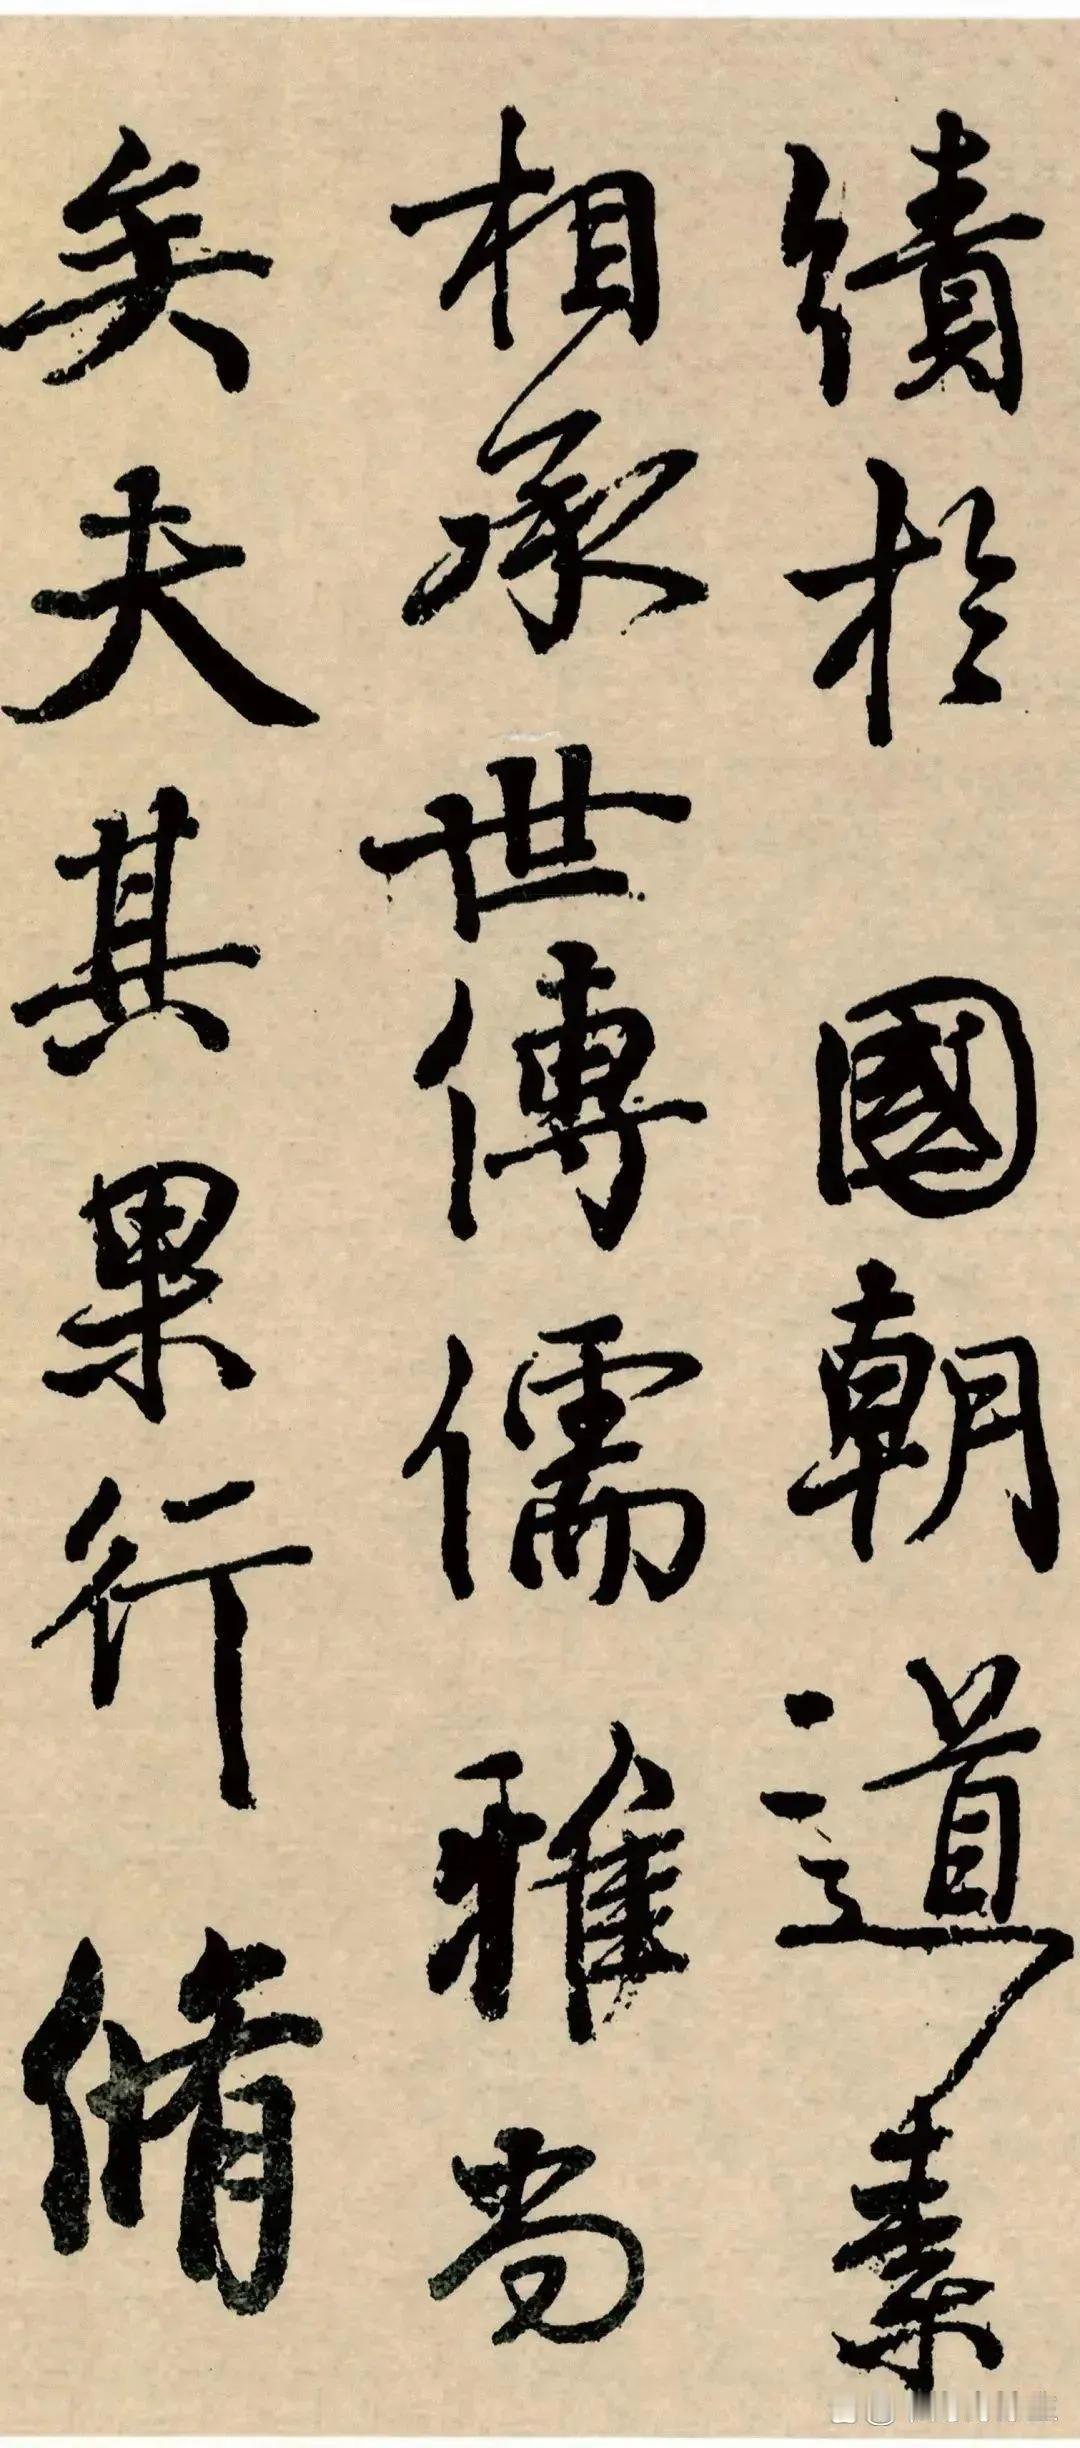 績於國朝遺素
相承世傳儒雅尚
矣夫其果行脩